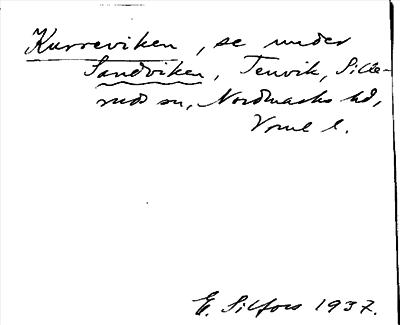 Kurreviken, se under
Sandviken, Tenvik, Sille-
rud sn, Nordmarks hd,
Vrml l.
E. Silfors 1937.